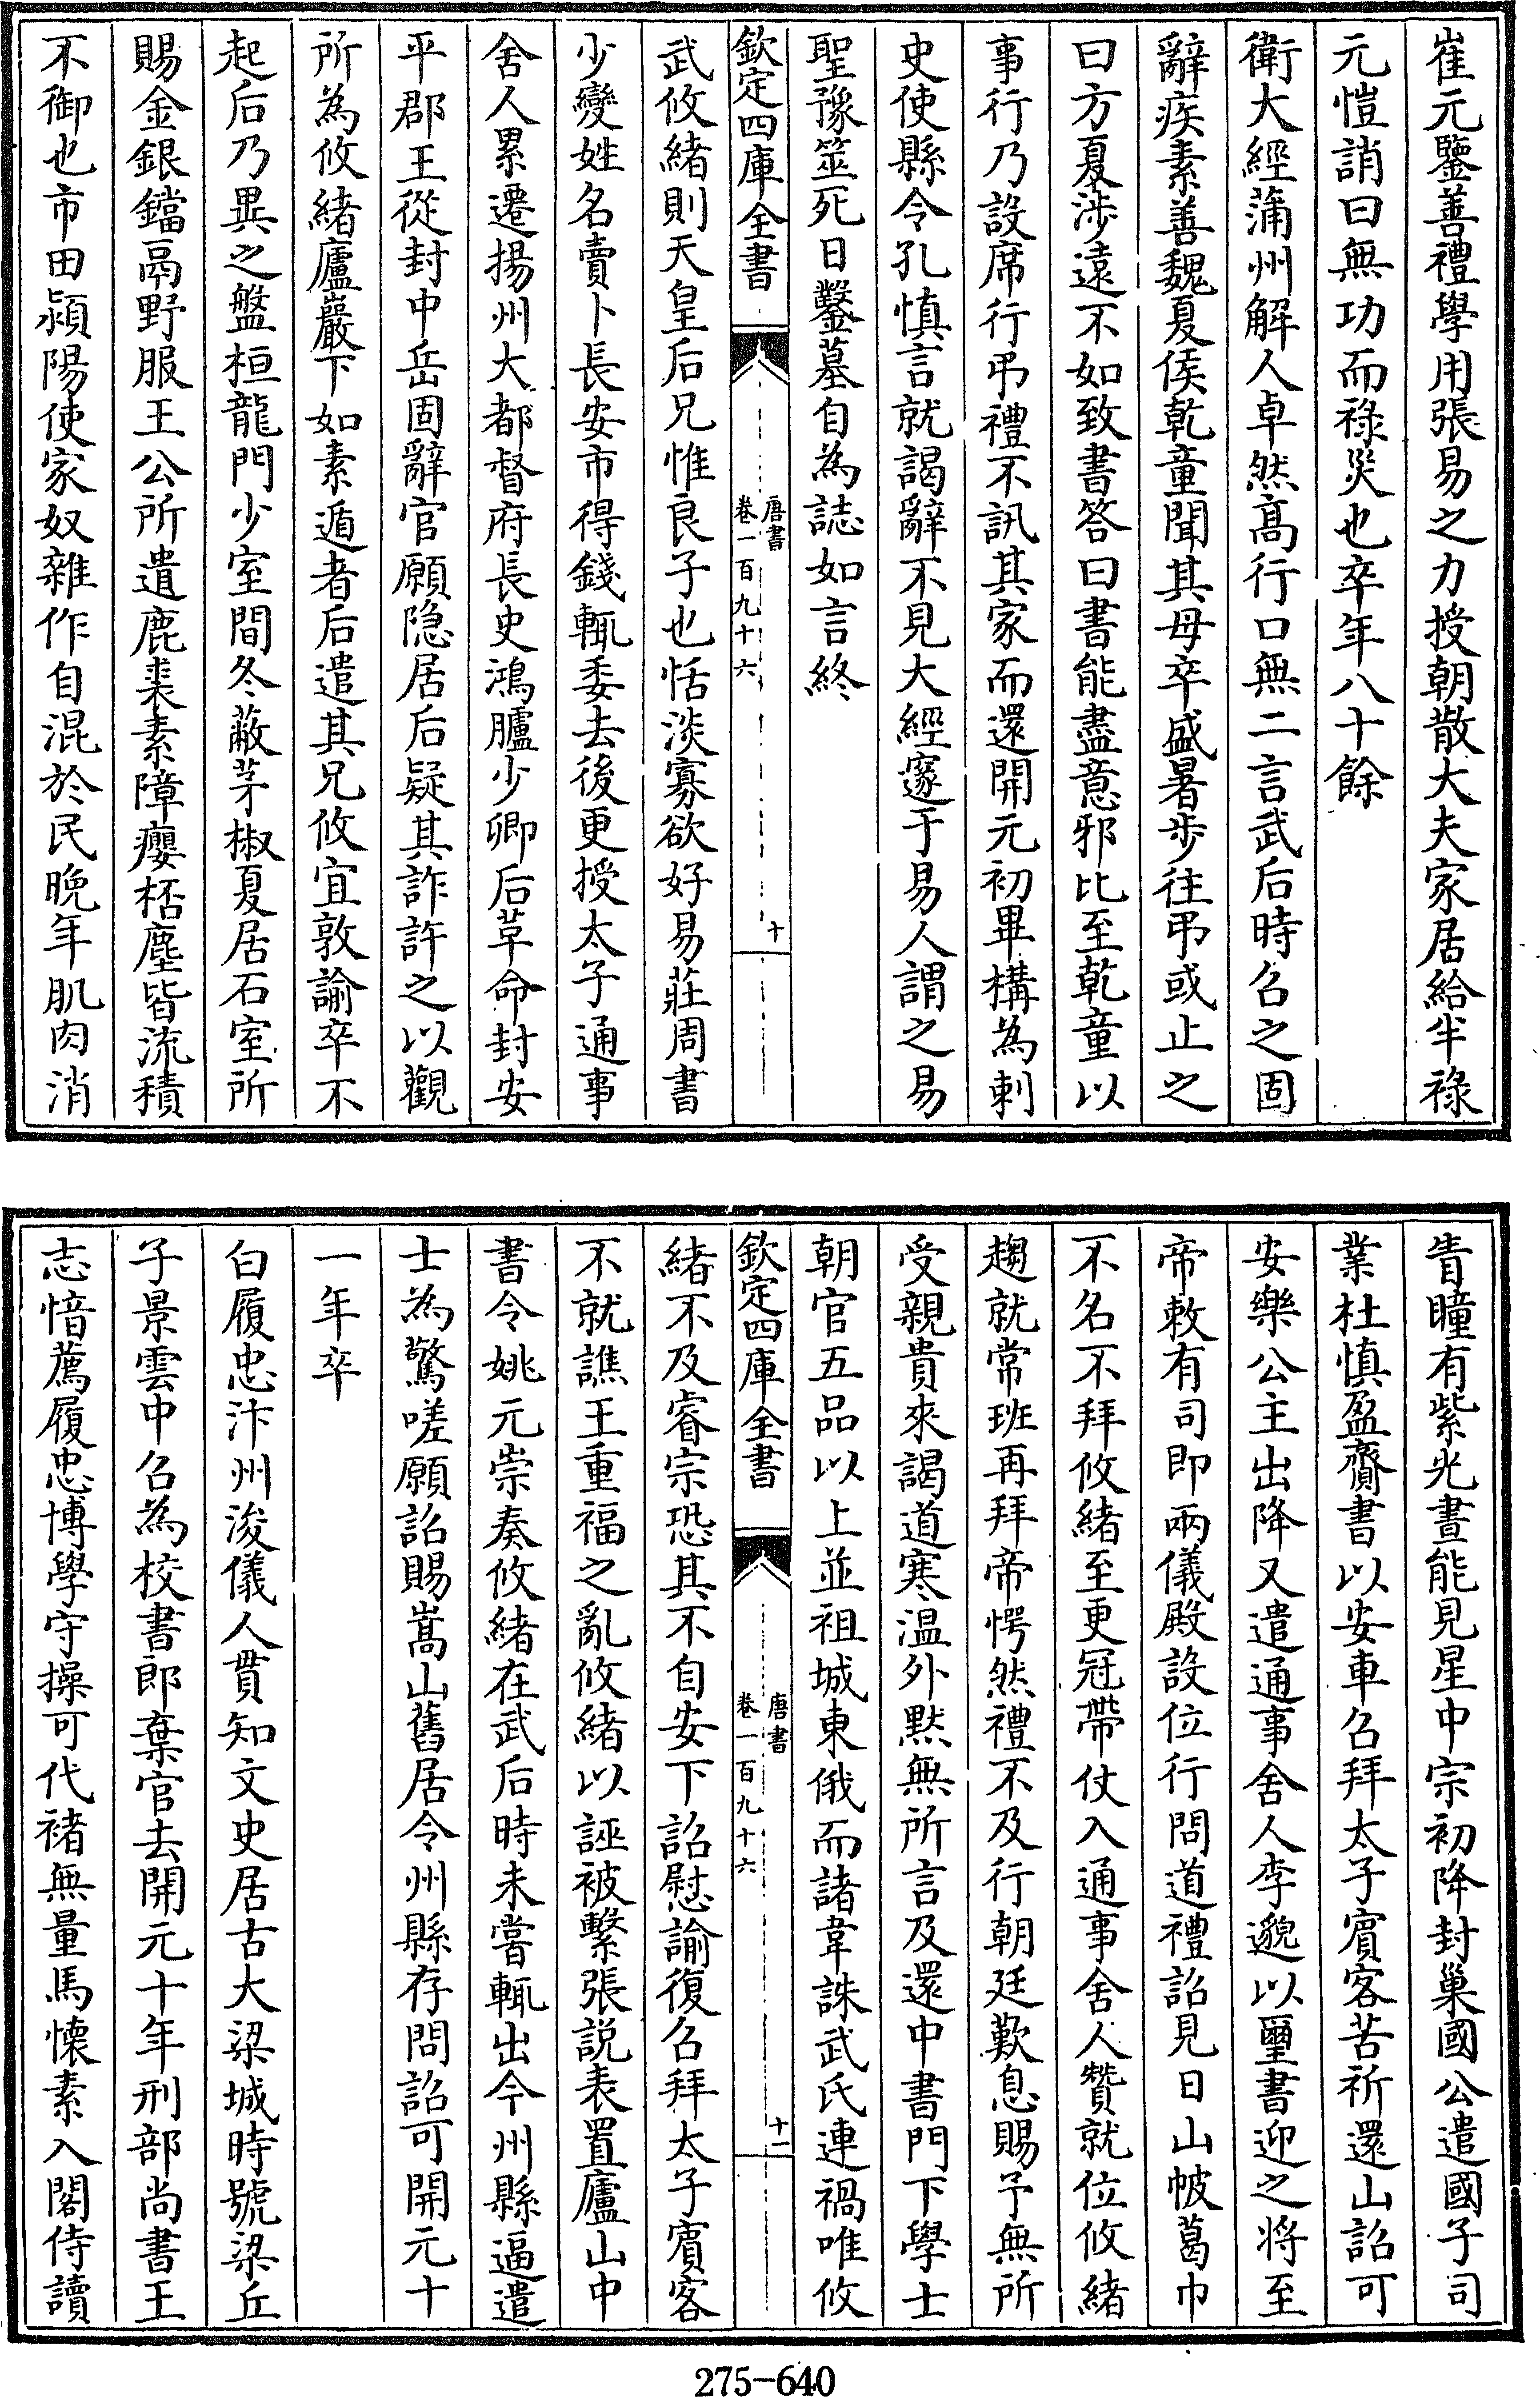 崔元鑒善禮學用張易之力授朝散大夫家居給半祿
元愷誚曰無功而祿災也卒年八十餘
衛大經蒲州解人卓然髙行口無二言武后時召之固
辭疾素善魏夏侯乾童聞其母卒盛暑步往弔或止之
曰方夏涉遠不如致書答曰書能盡意邪比至乾童以
事行乃設席行弔禮不訊其家而還開元初畢構為刺
史使縣令孔慎言就謁辭不見大經邃于易人謂之易
聖豫筮死日鑿墓自為誌如言終
欽定四庫全書
唐書
卷一百九十六
十
武攸緒則天皇后兄惟良子也恬淡寡欲好易莊周書
少變姓名賣卜長安市得錢輒委去後更授太子通事
舍人累遷揚州大都督府長史鴻臚少卿后革命封安
平郡王從封中岳固辭官願隠居后疑其詐許之以觀
所為攸緒廬巖下如素遁者后遣其兄攸宜敦諭卒不
起后乃異之盤桓龍門少室間冬蔽茅椒夏居石室所
賜金銀鐺鬲野服王公所遺鹿裘素障癭桮塵皆流積
不御也市田潁陽使家奴雜作自混於民晚年肌肉消
眚瞳有紫光晝能見星中宗初降封巢國公遣國子司
業杜慎盈齎書以安車召拜太子賓客苦祈還山詔可
安樂公主出降又遣通事舍人李邈以璽書迎之將至
帝敕有司即兩儀殿設位行問道禮詔見日山帔葛巾
不名不拜攸緒至更冠帶仗入通事舍人贊就位攸緒
趨就常班再拜帝愕然禮不及行朝廷歎息賜予無所
受親貴來謁道寒溫外黙無所言及還中書門下學士
朝官五品以上並祖城東俄而諸韋誅武氏連禍唯攸
欽定四庫全書
唐書
卷一百九十六
十一
緒不及睿宗恐其不自安下詔慰諭復召拜太子賓客
不就譙王重福之亂攸緒以誣被繫張説表置廬山中
書令姚元崇奏攸緒在武后時未嘗輒出今州縣逼遣
士為驚嗟願詔賜嵩山舊居令州縣存問詔可開元十
一年卒
白履忠汴州浚儀人貫知文史居古大梁城時號梁丘
子景雲中召為校書郎棄官去開元十年刑部尚書王
志愔薦履忠博學守操可代褚無量馬懷素入閣侍讀
275-640